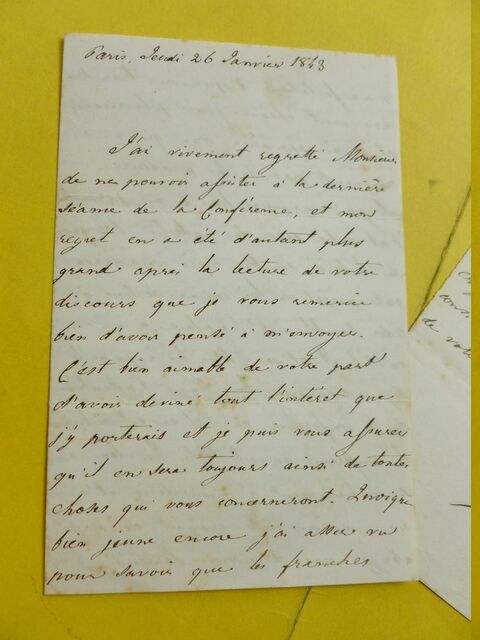 Paris, Jeudi 26 Janvier 1843
J'ai vivement regretté Monsieur
de ne pouvoir assister à la dernière
séance de la Conférence, et mon
regret en a été d'autant plus
grand après la lecture de votre
discours que je vous remercie
bien d'avoir pensé à m'envoyer.
C'est bien aimable de votre part
d'avoir deviné tout l'intérêt que
j'y porterais et je puis vous assurer
qu'il en sera toujours ainsi de toutes
choses qui vous concerneront. Quoique
bien jeune encore j'ai assez vu
pour savoir que les franches
de votre